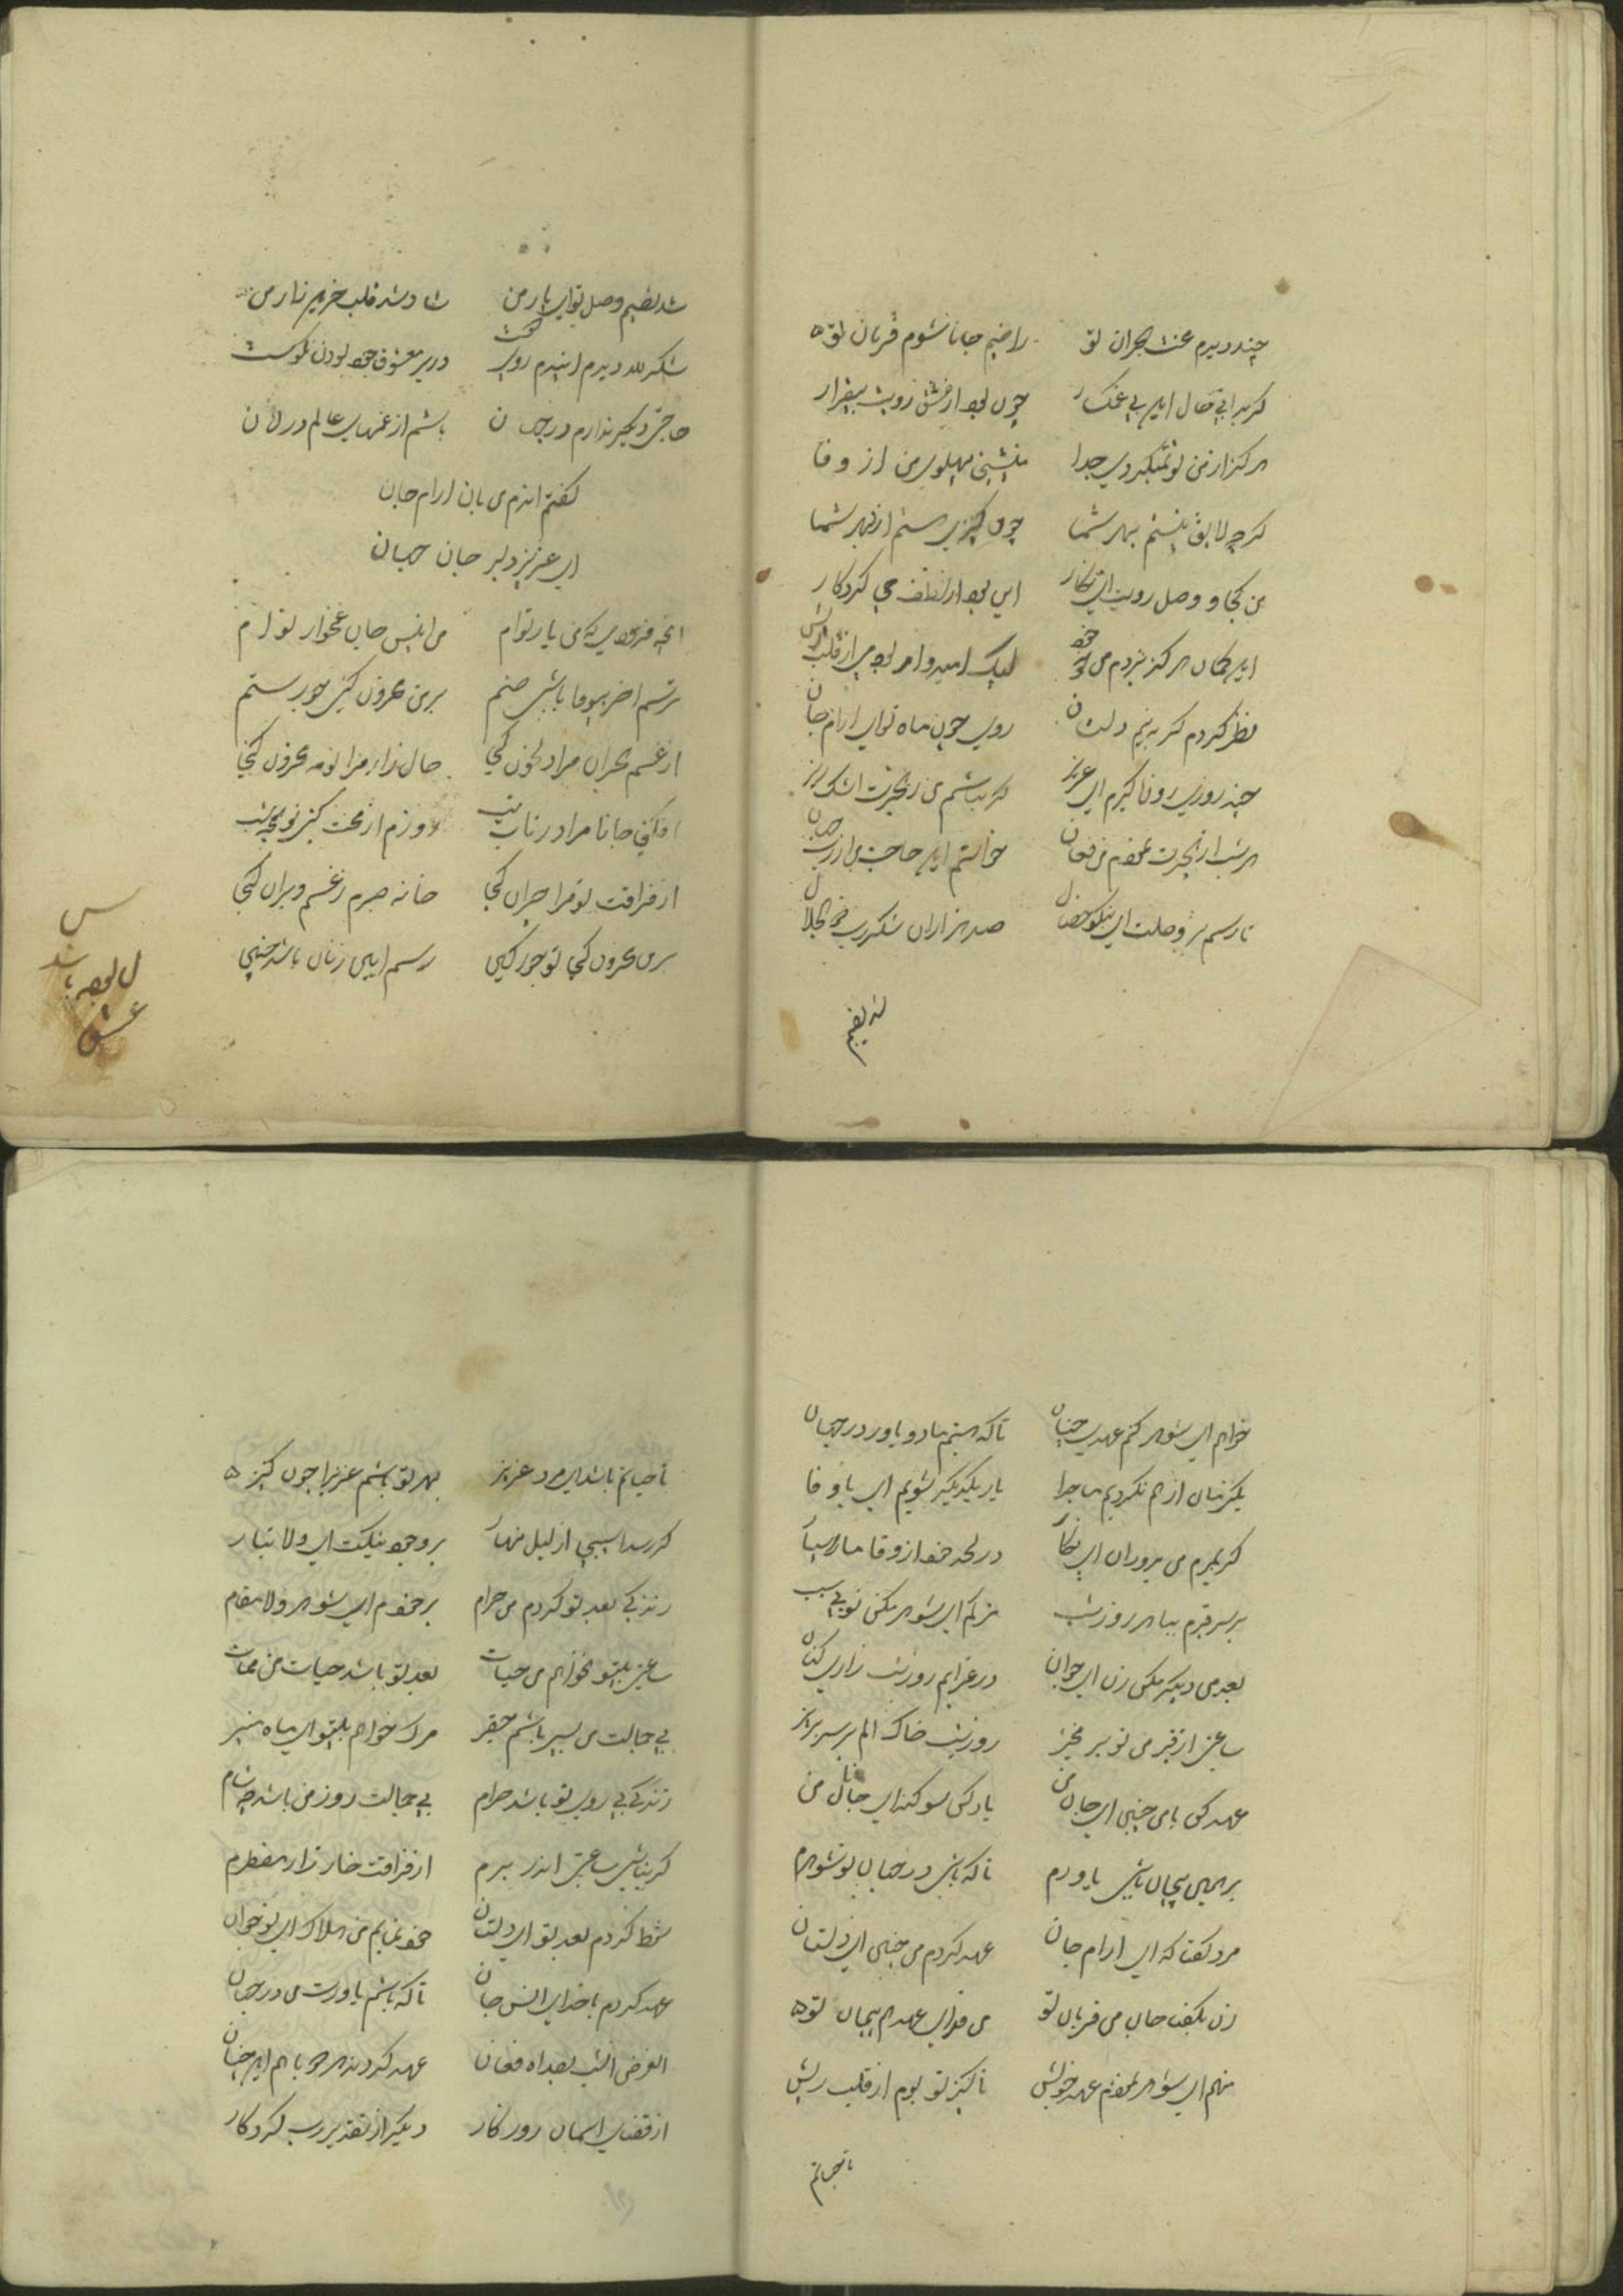 چند دیدم محنت هجران تو راضیم جانا شوم قربان تو
کر بدانی حال این بی غمکسار چون بود از عشق رویت بیقرار
هرکز از من تو نمیکردی جدا بنشینی پهلوی من از وفا
کرچه لایق نیستم بهر شما چون کنیزی هستم از بهر شما
من کجا و وصل رویت ای نکار این بود از لطف حی کردکار
این کمان هرکز نبردم من بخود لیک امیدوار بودم از قلب
نظر کردم کر ببینم دلستان روی چون ماه تو ای ارام جان
چند روزی رو نکیرم ای عزیز کر نباشم من ز هجرت اشک ریز
هر شب از هجرت نمودم من فغان خواستم این حاجت من از رب جهان
تا رسم بر وصلت ای نیکو خصال صد هزاران شکر رب ذو الجلال
شد نصیبم
شد نصیبم وصل تو ای یار من شاد شد قلب حزین زار من
شکر لله دیدم ایندم روی دوست در بر معشوق خود بودن نکوست
حاجتی دیکر ندارم در جهان باشم از غمهای عالم در امان
کفتم اندم من بان ارام جان
ای عزیز دلبر جان جهان
انچه فرمودی که من یار توام من انیس جان غمخوار توام
ترسم اخر بیوفا باشی صنم بر من محزون کنی جور ستم
از غم هجران مرا دلخون کنی حال زار مرا تو محزون کنی
افکنی جانا مرا در تاب تب روزم از محنت کنی تو همچو شب
از فراقت تو مرا حیران کنی خانه صبرم ز غم ویران کنی
بر من محزون کنی تو جور کین رسم این زنان باشد چنین
عشق
خواهم ای شوهر کنم عهدی چنان تا که هستم با تو یاور در جهان
یکزمان از هم نکردیم ما جدا یار یکدیکر شویم ای باوفا
کر بمیرم من بدوران ای نکار در لحد خود از وفا ما را سپار
بر سر قبرم بیا هر روز شب ترکم ای شوهر مکن تو بی سبب
بعد من دیکر مکن زن ای جوان در عزایم روز شب زاری کنان
ساعتی از قبر من تو بر مخیز روز شب خاک الم بر سر بریز
عهد کن با من چنین ای جان من یاد کن سوکند ای جانان من
بر همین پیمان باش یاورم تا که باشی در جهان تو شوهرم
مرد کفتا که ای ارام جان عهد کردم من چنین ای دلستان
زن بکفت جان من قربان تو من فدای عهد هم پیمان تو
منهم ای شوهر نمودم عهد خویش تا کنیز تو بوم از قلب ریش
تا حیاتم
تا حیاتم باشد ای مرد عزیز بهر تو باشم عزیزا چون کنیز
کر رسد اسیبی از لیل نهار بر وجود نیکت ای والا تبار
زندکی بعد تو کردم من حرام بر خودم ای شوهر والا مقام
ساعتی بیتو نخواهم من حیات بعد تو باشد حیات من ممات
بی جمالت من بسی باشم حقیر مرک خواهم بیتو ای ماه منیر
زندکی بی روی تو باشد حرام بی جمالت روز من باشد چو شام
کر نباشی ساعتی اندر برم از فراقت خار زار مضطرم
شرط کردم بعد تو ای دلستان خود نمایم من هلاک ای نوجوان
عهد کردم با خدای انس جان تا که باشم یاورت من در جهان
الغرض انشب بصد اه فغان عهد کردند هر دو با هم این چنان
از قضای اسمان روزکار دیکر از تقدیر رب کردکار